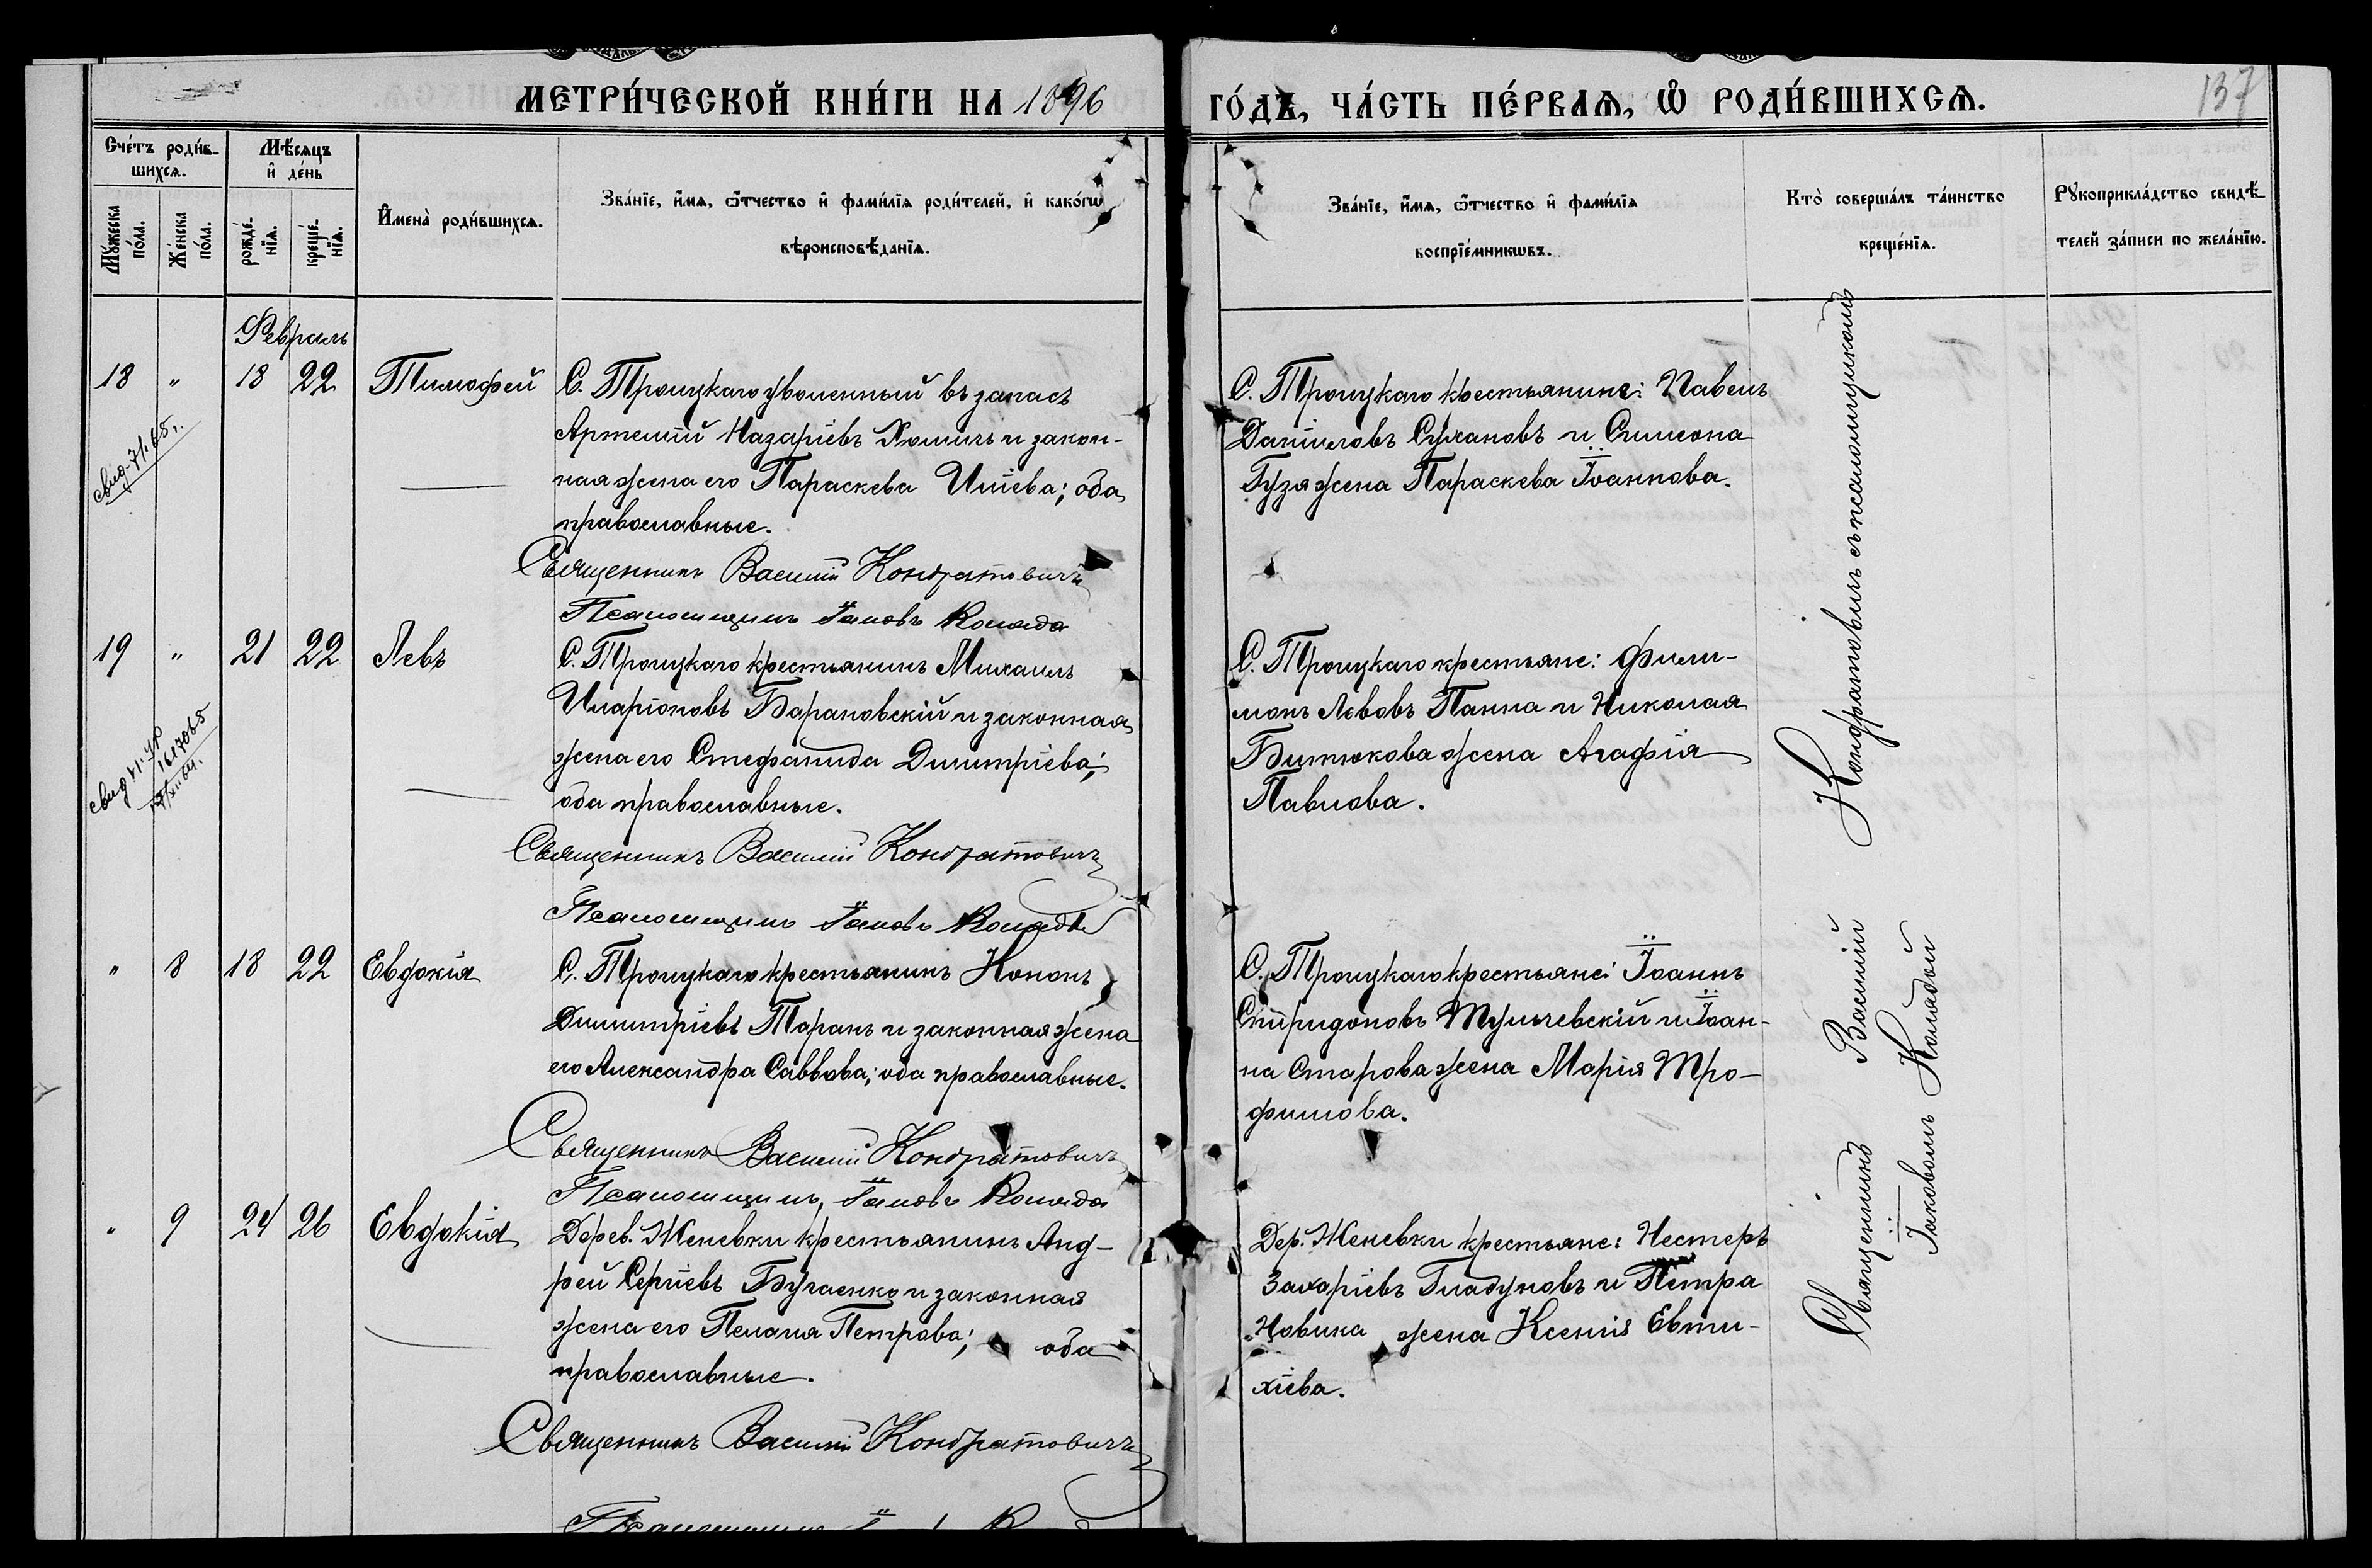 МЕТРИ́ЧЕСКОЙ КНИ́ГИ НА 1896
ГО́ДЪ, ЧА́СТЬ ПЕ́РВАѦ, Ѡ҆ РОДИ́ВШИХСѦ.
137
Сче́тъ роди́в-
шихсѧ.
Мѣ́сѧцъ
и҆ де́нь
Мꙋ́жеска
по́ла.
Же́нска
по́ла.
рожде́-
нїѧ.
креще́-
нїѧ.
И҆мена̀ роди́вшихсѧ.
Зва́нїе, и҆́мѧ, ѻ҆́тчество и҆ фами́лїѧ роди́телей, и҆ како́гѡ
вѣроисповѣ́данїѧ.
Зва́нїе, и҆́мѧ, ѻ҆́тчество и҆ фами́лїѧ
воспрїе́мникѡвъ.
Кто̀ соверша́лъ та́инство
креще́нїѧ.
Рꙋкоприкла́дство свидѣ́-
телей за́писи по жела́нїю.
Февраль
18 " 18 22 Тимофей
С. Троицкаго уволенный въ запасъ
Артемій Назаріевъ Хомичъ и закон-
ная жена его Параскева Иліева; оба
православные.
Священникъ Василій Кондратовичъ
Псаломщикъ Іаковъ Коляда
С. Троицкаго крестьянине: Павелъ
Даніиловъ Сухановъ и Симеона
Гузя жена Параскева Іоаннова.
19 " 21 22 Левъ
С. Троицкаго крестьянинъ Михаилъ
Иларіоновъ Барановскій и законная
жена его Стефанида Димитріева;
оба православные.
Священникъ Василій Кондратовичъ
Псаломщикъ Іаковъ Коляда
С. Троицкаго крестьяне: Фили-
монъ Львовъ Панна и Николая
Битюкова жена Агафія
Павлова.
" 8 18 22 Евдокія
С. Троицкаго крестьянинъ Кононъ
Димитріевъ Таранъ и законная жена
его Александра Саввова; оба православные.
Священникъ Василій Кондратовичъ
Псаломщикъ Іаковъ Коляда
С. Троицкаго крестьяне: Іоаннъ
Спиридоновъ Тульчевскій и Іоан-
на Старова жена Марія Тро-
фимова.
" 9 24 26 Евдокія
Дерев. Женевки крестьянинъ Анд-
рей Сергіевъ Бугаенко и законная
жена его Пелагія Петрова; оба
православные.
Священникъ Василій Кондратовичъ
Дер. Женевки крестьяне: Нестеръ
Захаріевъ Гладуновъ и Петра
Новика жена Ксенія Евти-
хіева.
Священникъ Василій Кондратовичъ съ псаломщикомъ
Іаковомъ Колядой